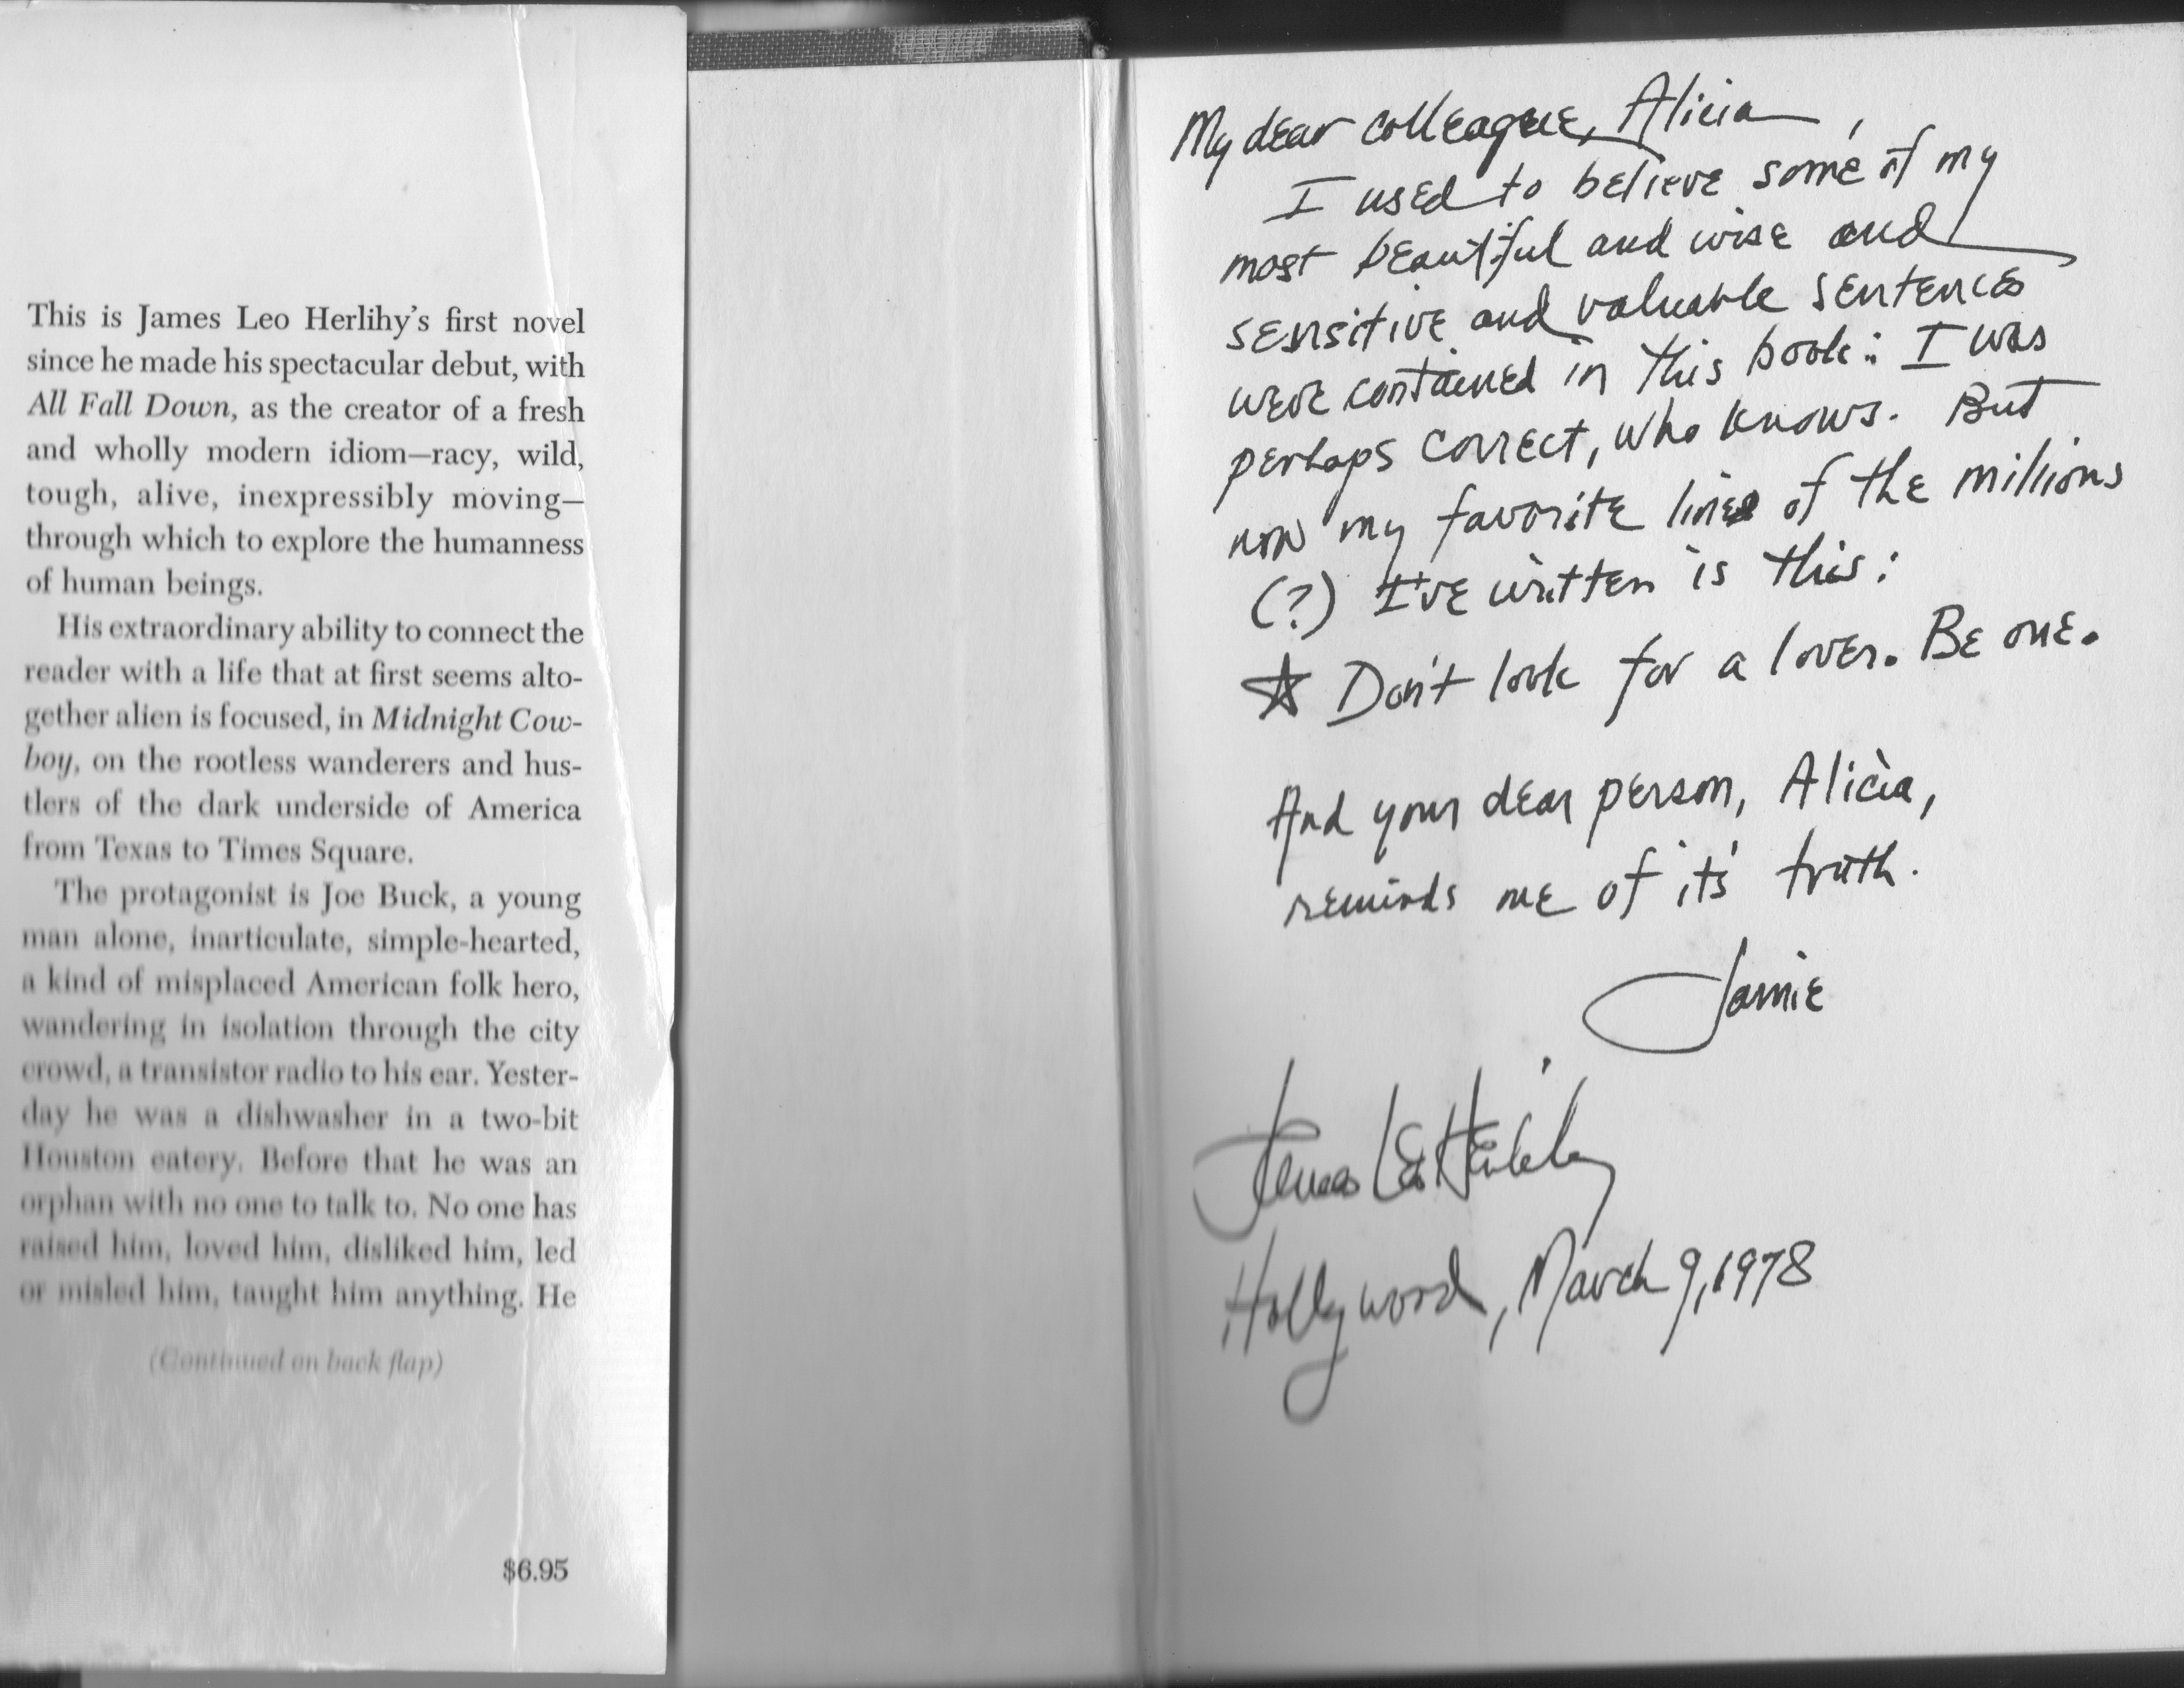 This is James Leo Herlihy's first novel
since he made his spectacular debut, with
All Fall Down, as the creator of a fresh
and wholly modern idiom—racy, wild,
tough, alive, inexpressibly moving—
through which to explore the humanness
of human beings.
His extraordinary ability to connect the
reader with a life that at first seems alto-
gether alien is focused, in Midnight Cow-
boy, on the rootless wanderers and hus-
tlers of the dark underside of America
from Texas to Times Square.
The protagonist is Joe Buck, a young
man alone, inarticulate, simple-hearted,
a kind of misplaced American folk hero,
wandering in isolation through the city
crowd, a transistor radio to his ear. Yester-
day he was a dishwasher in a two-bit
Houston eatery. Before that he was an
orphan with no one to talk to. No one has
raised him, loved him, disliked him, led
or misled him, taught him anything. He
(Continued on back flap)
$6.95
My dear colleague, Alicia,
I used to believe some of my
most beautiful and wise and
sensitive and valuable sentences
were contained in this book: I was
perhaps correct, who knows. But
now my favorite line of the millions
(?) I've written is this:
☆ Don't look for a lover. Be one.
And your dear person, Alicia,
reminds me of it's truth.
Jamie
James Leo Herlihy
Hollywood, March 9, 1978